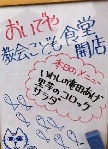 おいでや
教会こども食堂
開店
本日のメニュー
いわしの竜田あげ
里芋のコロッケ
サラダ